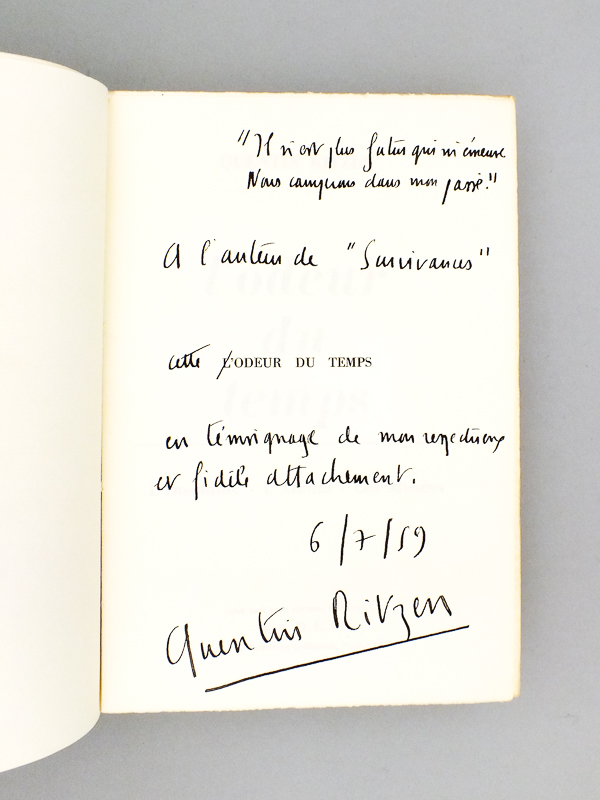 "Il n'est plus futur qui m'émeuve
Nous campons dans mon passé."
A l'auteur de "Survivances"
cette L'ODEUR DU TEMPS
en témoignage de mon respectueux
et fidèle attachement.
6/7/59
Quentin Ritzen